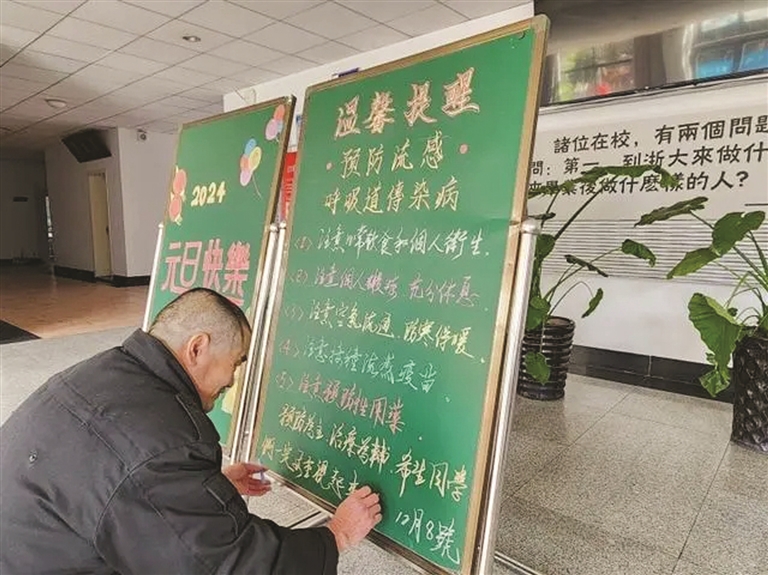 2024
元旦快樂
溫馨提醒
·預防流感·
呼吸道傳染病
(1)注意日常飲食和個人衛生.
(2)注意個人鍛煉.充分休息
(3)注意空氣流通、防寒保暖.
(4)注意接種流感疫苗.
(5)注意預防性用藥.
預防為主.治療為輔.希望同學
們一定要重視起來
12月8號
諸位在校，有兩個問題
問：第一，到浙大來做什
來畢業後做什麽樣的人？